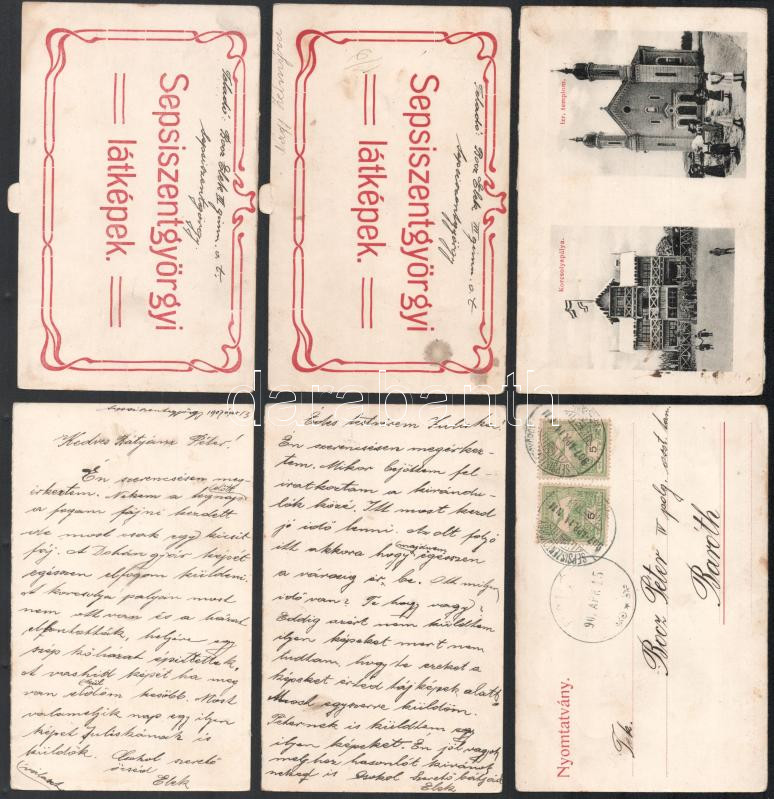 Sepsiszentgyörgyi
látképek.
Feladó: Booz Elek III gimn. o. t.
Sepsiszentgyörgy
Sepsiszentgyörgyi
látképek.
Feladó: Booz Elek III gimn. o. t.
Sepsiszentgyörgy
Izr. templom.
Korcsolyapálya.
darabanth
Sepsiszentgyörgy, 1907
Kedves Bátyám Péter!
Én szerencsésen meg-
érkeztem. Nekem a tegnap
a fogam fájni kezdett
de most csak egy kicsit
fáj. A Dohány gyár képét
egészen elfogom küldeni.
A korcsolya pályán most
nem ott van és a házat
elbontották, helyire egy
szép kőházat építettek.
A vashid képét ha meg
van küldöm később. Most
valamelyik nap egy ilyen
képet Juliskának is
küldök. Csokol szerető
öcséd
Elek
Édes testvérem Juliska!
Én szerencsésen megérkez-
tem. Mikor bejöttem fel-
iratkoztam a kirándu-
lók közé. Itt most kezd
jó idő lenni. Az olt folyó
itt akkora hogy majdnem egészen
a városig ér be. Ott milyen
idő van? Te hogy vagy?
Eddig azért nem küldtem
ilyen képeket mert nem
tudtam, hogy be ezeket a
képeket
egyszerre küldöm.
Péternek is küldtem egy
ilyen képeket. Én jól vagyok
melyhez hasonlót kivánok
neked is Csokol szerető bátyád
Elek
5
5
907 APR
Nyomtatvány.
Tek.
Booz Péter IV polg. oszt. tan.
Baróth